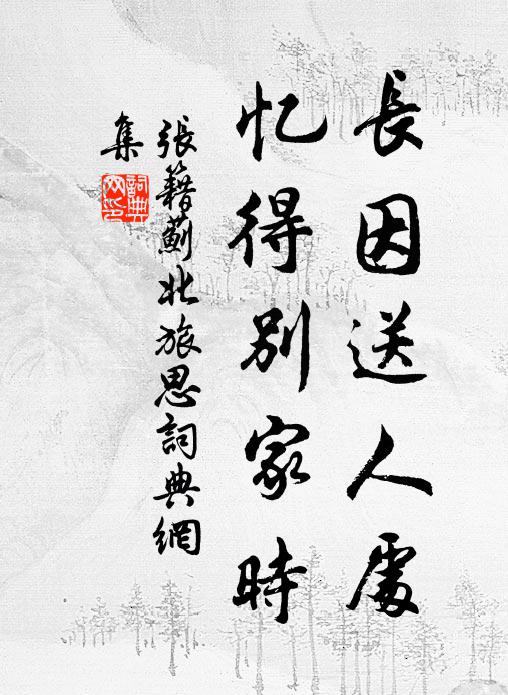 長因送人處
忆得別家時
張籍薊北旅思詞典網
集
詞典網印